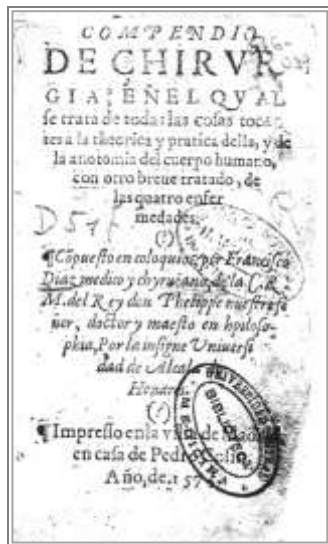 COMPENDIO
DE CHIRVR
GIA, EÑEL QVAL
se trata de todas las cosas tocã
tes a la theorica y pratica della, y de
la anotomia del cuerpo humano,
con otro breue tratado, de
las quatro enfer
medades.
(?)
¶Cõpuesto en coloquios, por Francisco
Diaz medico y chyrurano, de la C. R.
M. del Rey don Phelippe nuestro se
ñor, doctor y maesto en hpiloso-
phia, Por la insigne Universi
dad de Alcala
Henares
(?)
¶Impresso en la villa de
en casa de Pedro
Año, de. 157
D 57
BIBLIOTECA